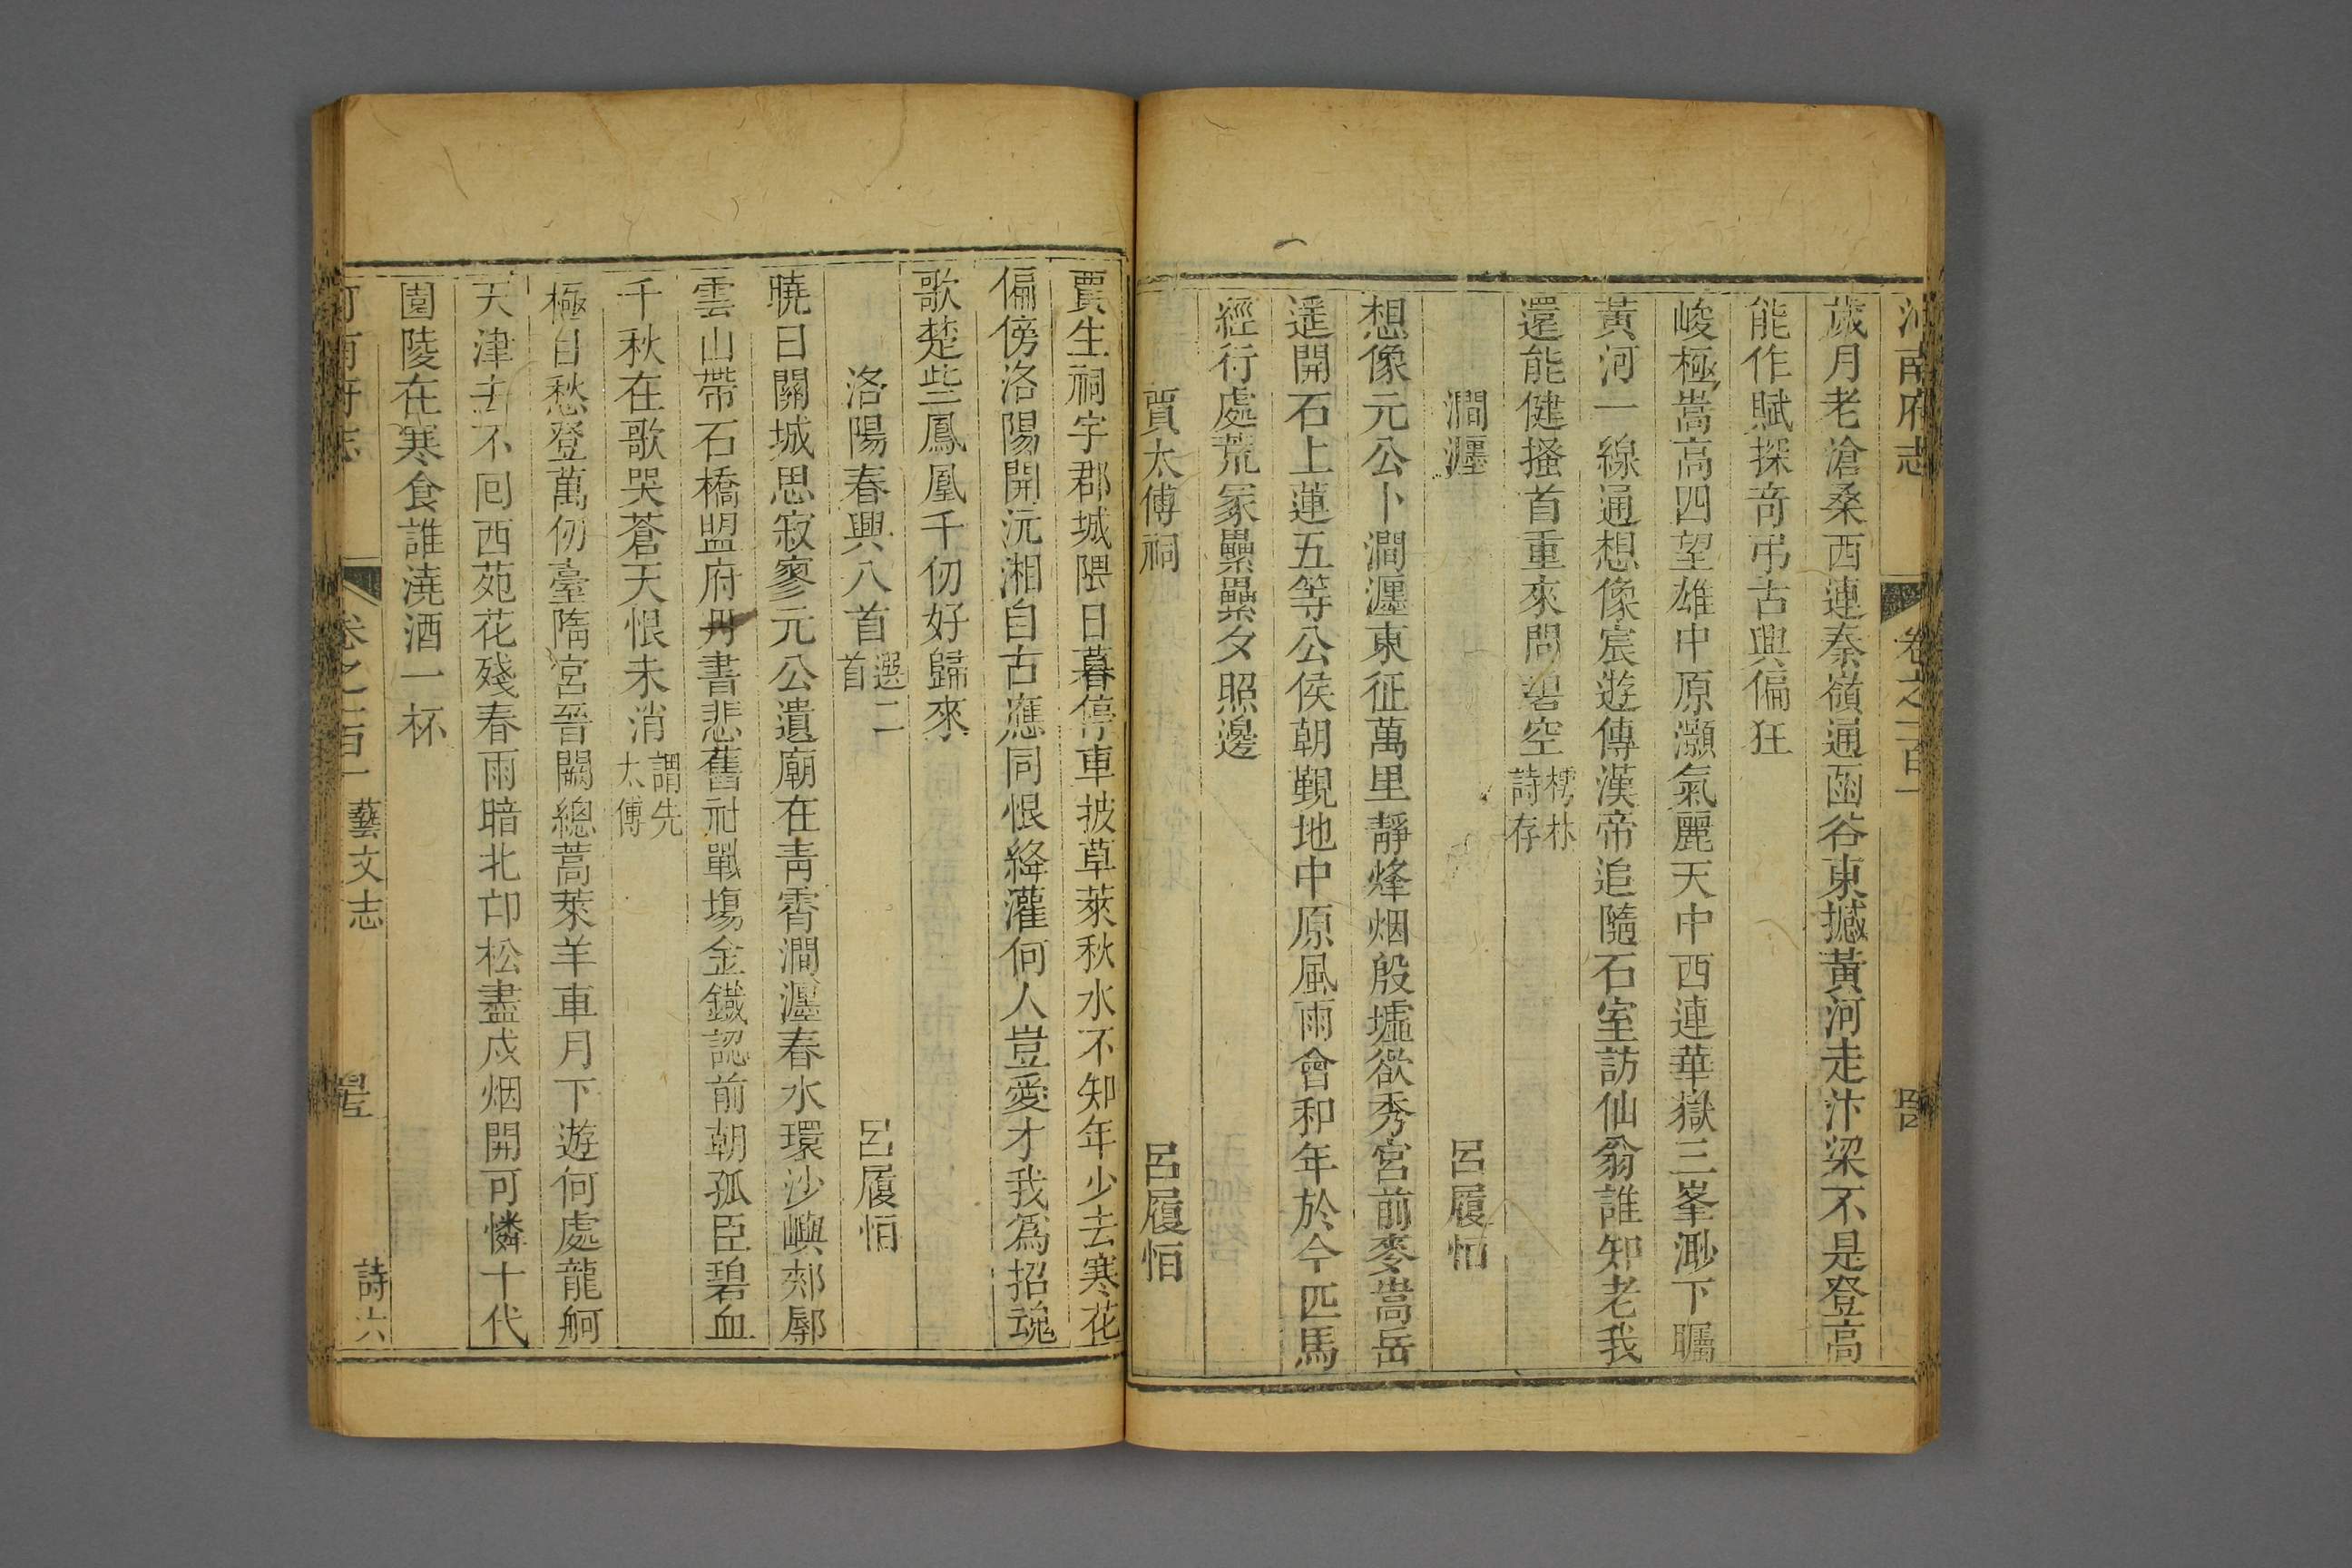 河南府志 卷之一百一
歲月老滄桑西連秦嶺通函谷東撼黃河走汴梁不是登高
能作賦探奇弔古興偏狂
峻極嵩高四望雄中原灝氣麗天中西連華嶽三峯渺下矚
黃河一線通想像宸遊傳漢帝追隨石室訪仙翁誰知老我
還能健搔首重來問碧空 樗林詩存
澗瀍 呂履恒
想像元公卜澗瀍東征萬里靜烽烟殷墟欲秀宮前麥嵩岳
遥開石上蓮五等公侯朝覲地中原風雨會和年於今匹馬
經行處荒冢纍纍夕照邊
賈太傅祠 呂履恒
賈生祠宇郡城隈日暮停車披草萊秋水不知年少去寒花
偏傍洛陽開沅湘自古應同恨絳灌何人豈愛才我為招魂
歌楚些鳳凰千仞好歸來
洛陽春興八首 選二首 呂履恒
曉日關城思寂寥元公遺廟在靑霄澗瀍春水環沙嶼郟鄏
雲山帶石橋盟府丹書悲舊社戰塲金鐵認前朝孤臣碧血
千秋在歌哭蒼天恨未消 謂先太傅
極目愁登萬仞臺隋宮晉闕總蒿萊羊車月下遊何處龍舸
天津去不囘西苑花殘春雨暗北邙松盡戍烟開可憐十代
園陵在寒食誰澆酒一杯
河南府志 卷之一百一 藝文志 詩六